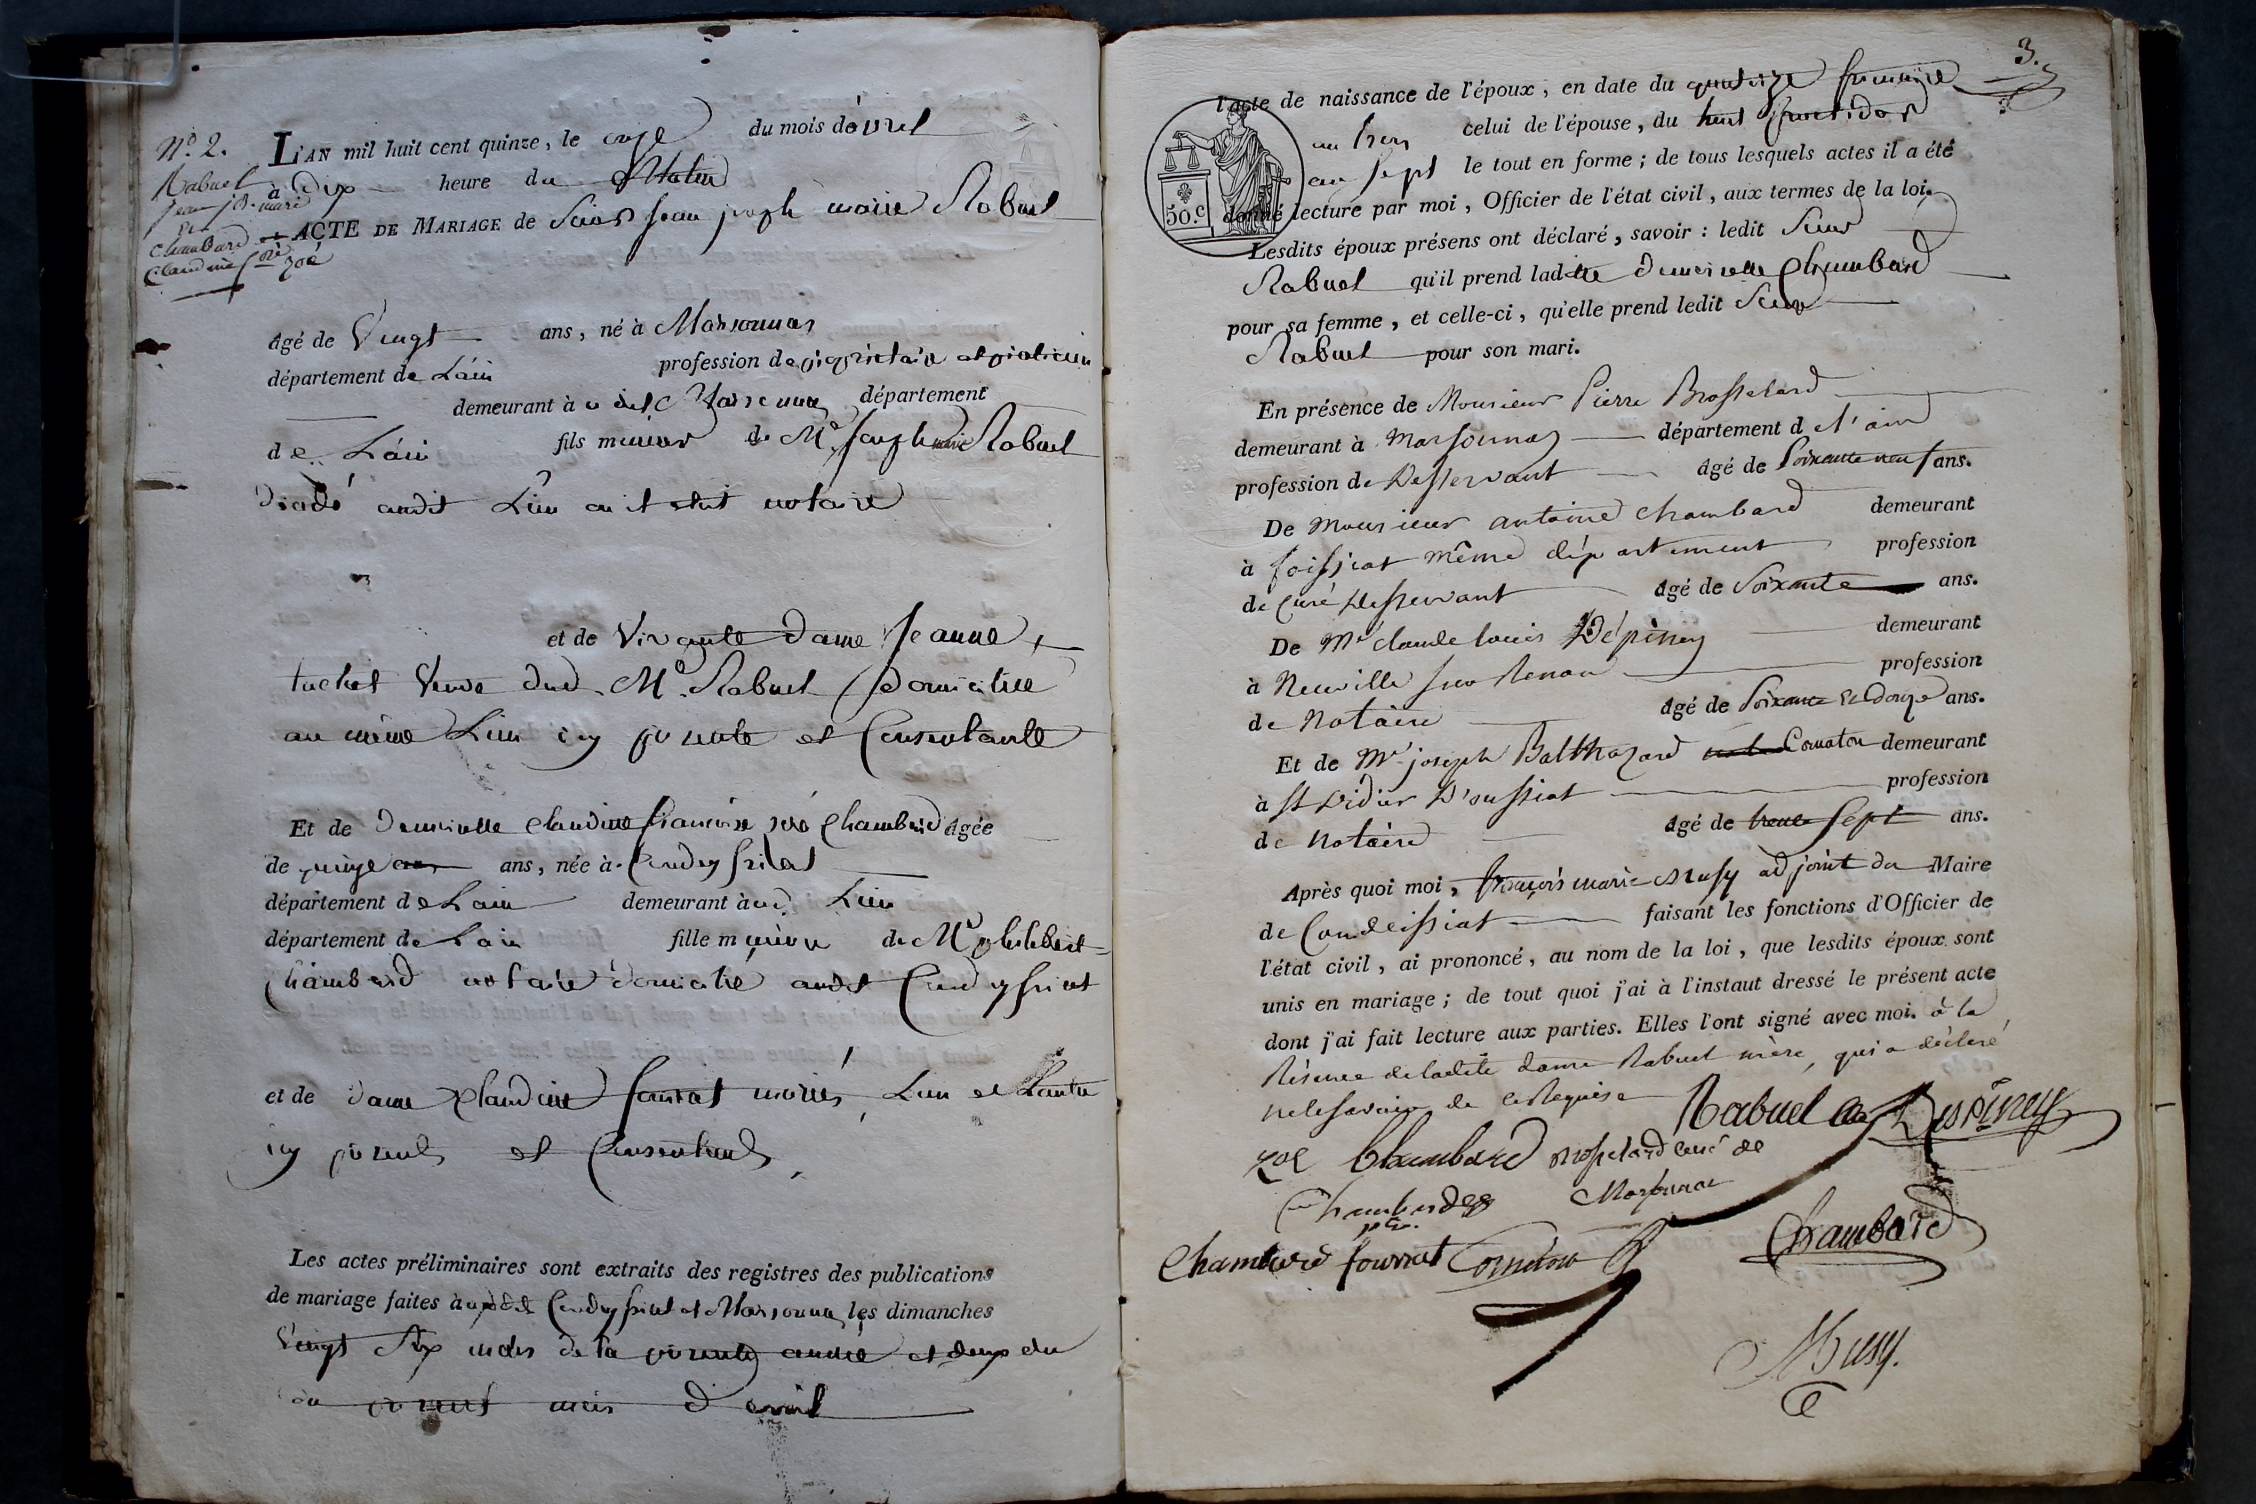 N.º 2.
Rabuel
Jean jph. marie
et
Chambard
Claudine fse
zoé
L'AN mil huit cent quinze, le onze du mois d'avril
à Dix heure du Matin
ACTE DE MARIAGE de Sieur Jean joseph marie Rabuel
âgé de Vingt ans, né à Marsonnas
département de L'ain profession de propriétaire et praticien
demeurant à udit Marsonnas département
de L'ain fils mineur de Me Joseph marie Rabuel
Décédé audit Lieu où il etait notaire
et de Vivante Dame Jeanne
tuchet Veuve dud. Me. Rabuel Domiciliée
au même Lieu icy présente et Consentante
Et de Demoiselle Claudine françoise zoé Chambard âgée
de quinze ans, née à Condeyssiat
département de L'ain demeurant àud. Lieu
département de L'ain fille mineure de Me philibert
Chambard notaire domicilié audit Condeyssiat
et de dame Claudine fourrat mariés, L'un et L'autre
icy présents et Consentants,
Les actes préliminaires sont extraits des registres des publications
de mariage faites à Condeyssiat et Marsonnas les dimanches
Vingt Six mars de la présente année et deux du
du présent mois d'avril
3.
l'acte de naissance de l'époux, en date du quatorze frimaire
an trois celui de l'épouse, du huit fructidor
an sept le tout en forme; de tous lesquels actes il a été
50.c
donné lecture par moi, Officier de l'état civil, aux termes de la loi.
Lesdits époux présens ont déclaré, savoir : ledit Sieur
Rabuel qu'il prend ladite demoiselle Chambard
pour sa femme, et celle-ci, qu'elle prend ledit Sieur
Rabuel pour son mari.
En présence de Monsieur Pierre Brosselard
demeurant à Marsonnas département de l'ain
profession de Desservant âgé de Soixante neuf ans.
De Monsieur antoine Chambard demeurant
à foissiat même département profession
de Curé Desservant âgé de Soixante ans.
De Mr Claude louis Dépiney demeurant
à Neuville sur Renon profession
de Notaire âgé de Soixante et douze ans.
Et de Mr joseph Balthazard Cornaton demeurant
à St Didier D'aussiat profession
de Notaire âgé de trente Sept ans.
Après quoi moi, françois marie Musy adjoint du Maire
de Condeissiat faisant les fonctions d'Officier de
l'état civil, ai prononcé, au nom de la loi, que lesdits époux sont
unis en mariage; de tout quoi j'ai à l'instant dressé le présent acte
dont j'ai fait lecture aux parties. Elles l'ont signé avec moi. à la
Réserve de ladite dame Rabuel mère, qui a déclaré
ne le savoir de ce Requise
Rabuel Despiney
zoé Chambard Brosselard curé de
Marsonnas
Chambard
Chambard fourrat Cornaton Chambard
Musy.